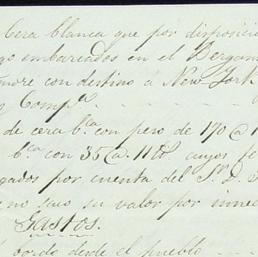 Cera blanca que por disposició
go embarcados en el Bergan
more con destino á New York
y Compª.
de cera bca. con peso de 170 @ 1
bca con 35 @ 11 lb cuyos fe
gados por cuenta del Sr. D. J
no seas su valor por inme
Gastos.
bordo desde el pueblo